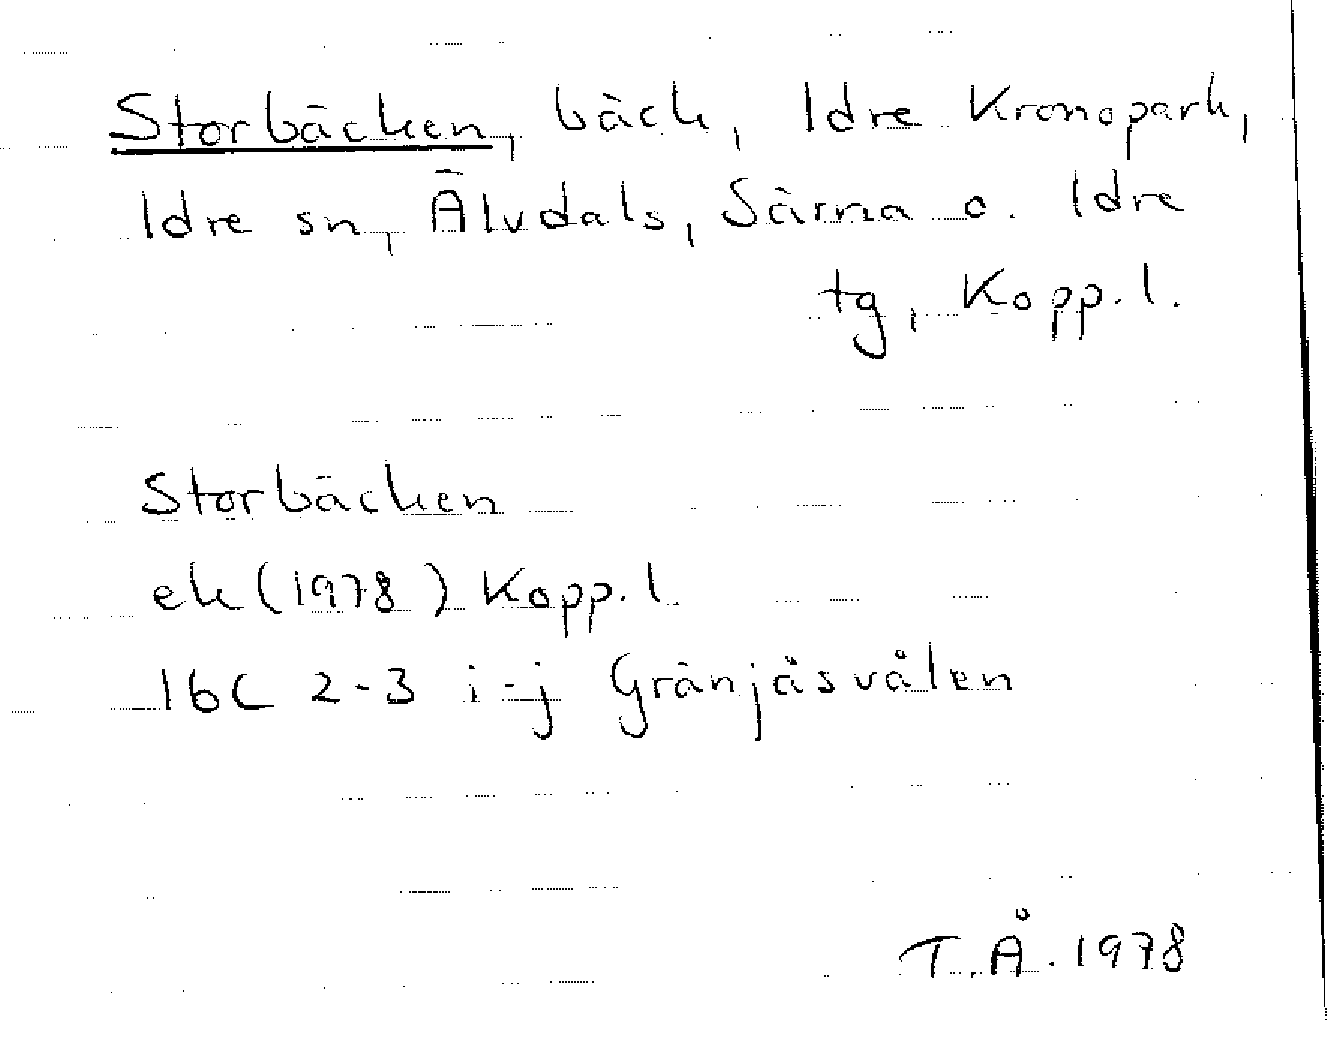 Storbäcken, bäck, Idre Kronopark,
Idre sn, Älvdals, Särna o. Idre
tg, Kopp. l.
Storbäcken
ek (1978) Kopp. l.
16C 2-3 i-j Gränjäsvålen
T.Å. 1978